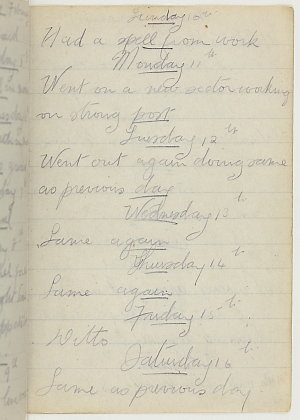 Sunday 10th
Had a spell from work
Monday 11th
Went on a new sector working
on strong post
Tuesday 12th
Went out again doing same
as previous day
Wednesday 13th
Same again
Thursday 14th
Same again
Friday 15th
Ditto
Saturday 16th
Same as previous day